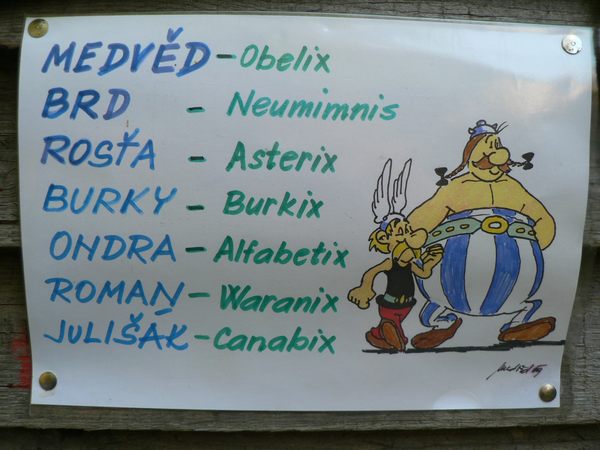 MEDVĚD - Obelix
BRD - Neumimnis
ROSŤA - Asterix
BURKY - Burkix
ONDRA - Alfabetix
ROMAN - Waranix
JULIŠÁK - Canabix